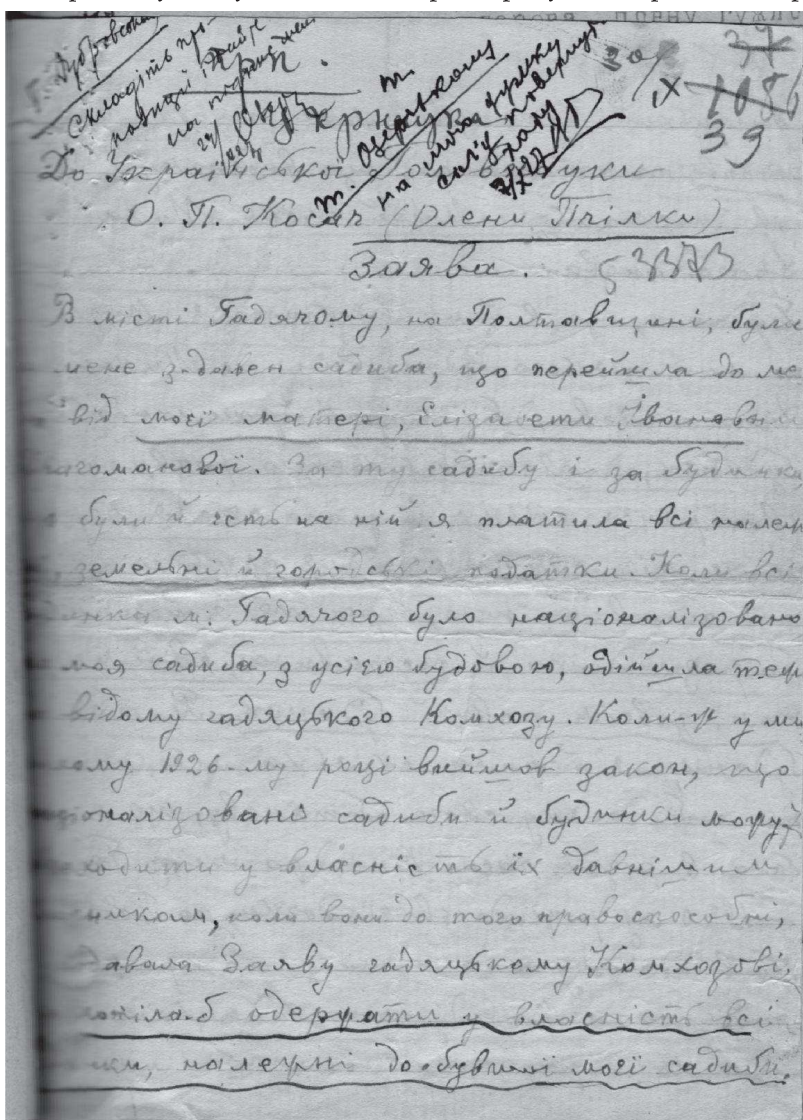 Дубровськ
Складіть про-
позиції
на
До Української
О. П. Косач (Олени Пчілки)
Заява.
т. Озерському
на мою думку
слід повернути
хату
30/IX
37
1086
39
В місті Гадячому, на Полтавщині, була
мене здавен садиба, що перейшла до ме
від моєї матері, Єлізавети Івановни
агоманової. За ту садибу і за будинки,
були й єсть на ній я платила всі належ
земельні й городські податки. Коли всі
динки м. Гадячого було націоналізовано
моя садиба, з усією будовою, одійшла теж
відому гадяцького Комхозу. Коли-ж у ми
лому 1926-му році вийшов закон, що
ціоналізовані садиби й будинки можуть
ходити у власність їх давнішим
сникам, коли вони до того правоспособні,
давала Заяву гадяцькому Комхозові,
хотіла-б одержати у власність всі
ки, належні до бувшої моєї садиби.